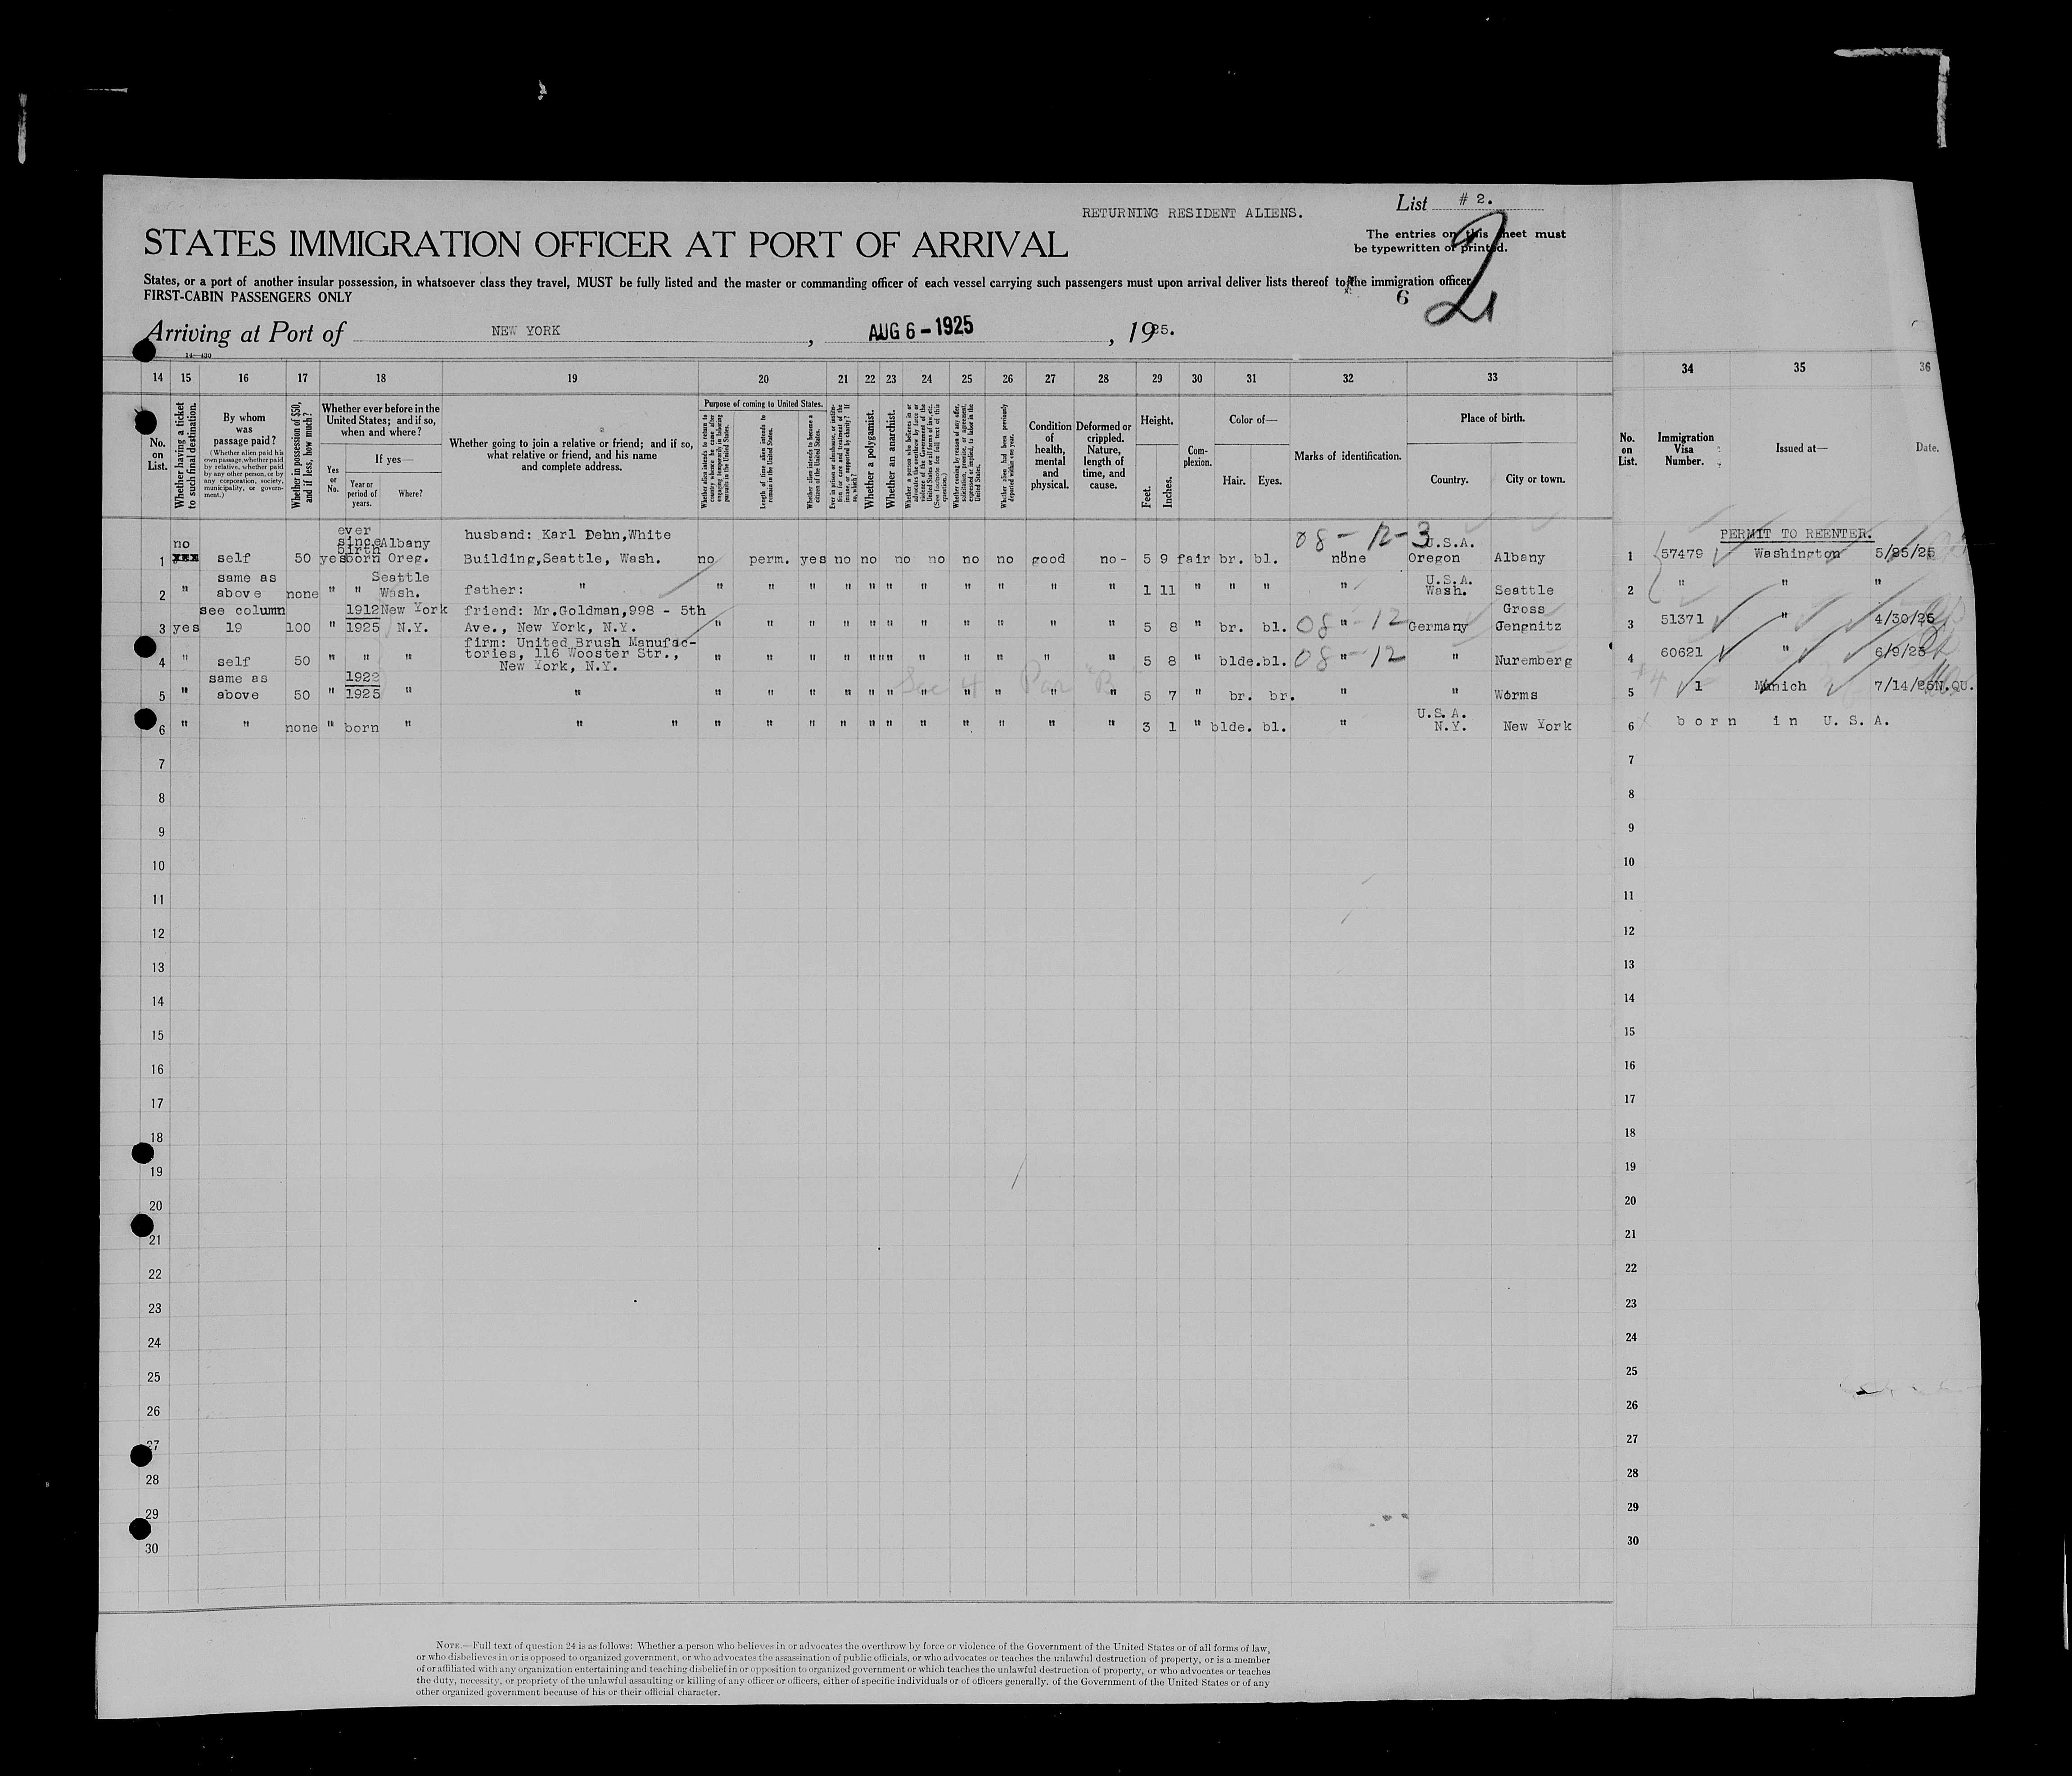 RETURNING RESIDENT ALIENS.
List # 2.
STATES IMMIGRATION OFFICER AT PORT OF ARRIVAL
The entries on this sheet must
be typewritten or printed.
2
States, or a port of another insular possession, in whatsoever class they travel, MUST be fully listed and the master or commanding officer of each vessel carrying such passengers must upon arrival deliver lists thereof to the immigration officer
FIRST-CABIN PASSENGERS ONLY
6
Arriving at Port of NEW YORK, AUG 6 - 1925, 1925.
14—430
14 15 16 17 18 19 20 21 22 23 24 25 26 27 28 29 30 31 32 33 34 35 36
No. on List.
Whether having a ticket to such final destination.
By whom was passage paid?
(Whether alien paid his own passage, whether paid by relative, whether paid by any other person, or by any corporation, society, municipality, or government.)
Whether in possession of $50, and if less, how much?
Whether ever before in the United States; and if so, when and where?
Yes or No.
If yes—
Year or period of years.
Where?
Whether going to join a relative or friend; and if so, what relative or friend, and his name and complete address.
Purpose of coming to United States.
Whether alien intends to return to country whence he came after engaging temporarily in laboring pursuits in the United States.
Length of time alien intends to remain in the United States.
Whether alien intends to become a citizen of the United States.
Ever in prison or almshouse, or institution for care and treatment of the insane, or supported by charity? If so, which?
Whether a polygamist.
Whether an anarchist.
Whether a person who believes in or advocates the overthrow by force or violence of the Government of the United States or all forms of law, etc. (See footnote for full text of this question.)
Whether coming by reason of any offer, solicitation, promise, or agreement, expressed or implied, to labor in the United States.
Whether alien had been previously deported within one year.
Condition of health, mental and physical.
Deformed or crippled. Nature, length of time, and cause.
Height.
Feet.
Inches.
Complexion.
Color of—
Hair.
Eyes.
Marks of identification.
Place of birth.
Country.
City or town.
No. on List.
Immigration Visa Number.
Issued at—
Date.
PERMIT TO REENTER.
08 - 12 - 3
1 no xxx self 50 yes ever since birth born Albany Oreg. husband: Karl Dehn, White Building, Seattle, Wash. no perm. yes no no no no no no good no - 5 9 fair br. bl. none U.S.A. Oregon Albany 1 57479 Washington 5/25/25
2 " same as above none " " Seattle Wash. father: " " " " " " " " " " " " 1 11 " " " " U.S.A. Wash. Seattle 2 " " "
3 yes see column 19 100 " 1912 1925 New York N.Y. friend: Mr. Goldman, 998 - 5th Ave., New York, N.Y. " " " " " " " " " " " 5 8 " br. bl. 08 " - 12 Germany Gross Jengnitz 3 51371 " 4/30/25
4 " self 50 " " " firm: United Brush Manufactories, 116 Wooster Str., New York, N.Y. " " " " " " " " " " " 5 8 " blde. bl. 08 " - 12 " Nuremberg 4 60621 " 6/9/25
Sec 4 Par "B"
5 " same as above 50 " 1922 1925 " " " " " " " " " " " " " 5 7 " br. br. " " Worms 5 1 Munich 7/14/25 N.QU.
6 " " none " born " " " " " " " " " " " " " " 3 1 " blde. bl. " U.S.A. N.Y. New York 6 born in U.S.A.
7 7
8 8
9 9
10 10
11 11
12 12
13 13
14 14
15 15
16 16
17 17
18 18
19 19
20 20
21 21
22 22
23 23
24 24
25 25
26 26
27 27
28 28
29 29
30 30
NOTE.—Full text of question 24 is as follows: Whether a person who believes in or advocates the overthrow by force or violence of the Government of the United States or of all forms of law,
or who disbelieves in or is opposed to organized government, or who advocates the assassination of public officials, or who advocates or teaches the unlawful destruction of property, or is a member
of or affiliated with any organization entertaining and teaching disbelief in or opposition to organized government or which teaches the unlawful destruction of property, or who advocates or teaches
the duty, necessity, or propriety of the unlawful assaulting or killing of any officer or officers, either of specific individuals or of officers generally, of the Government of the United States or of any
other organized government because of his or their official character.